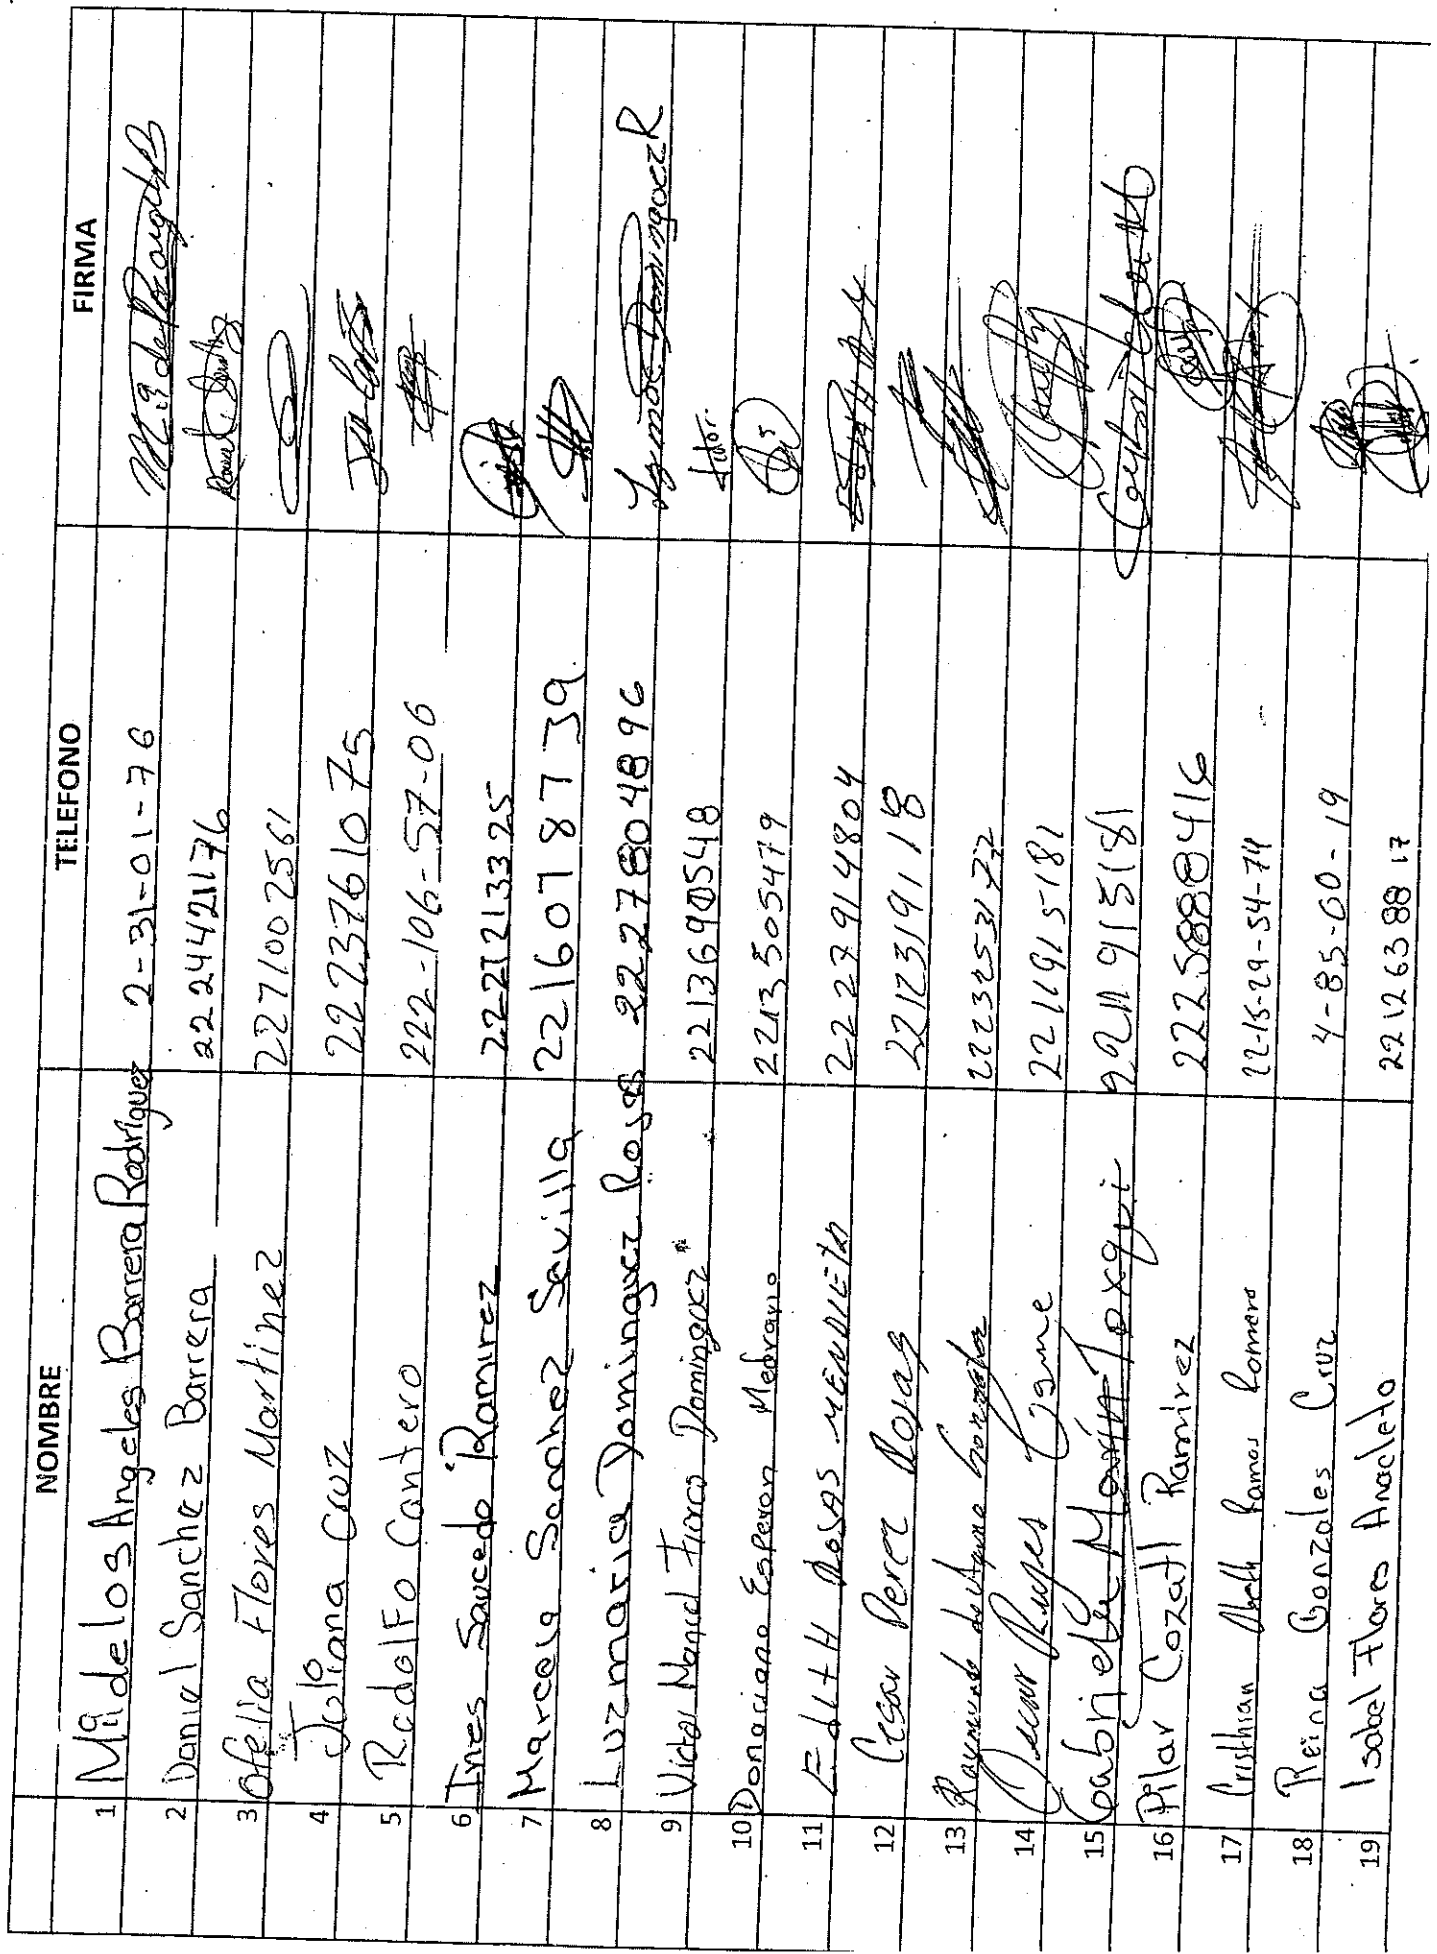 NOMBRE TELEFONO FIRMA
1 Ma de los Angeles Barrera Rodriguez 2-31-01-76
2 Daniel Sanchez Barrera 2224421176
3 Ofelia Flores Martinez 2271002561
4 Juliana Cruz 2223761075
5 Rodolfo Cantero 222-106-57-06
6 Ines Saucedo Ramirez 2221213325
7 Marcela Sanchez Sevilla 2216018739
8 Luzmaria Dominguez Rosas 2227804896 Luzmaria Dominguez R
9 Victor Manuel Franco Dominguez 2213690548
10 Donaciano Esperon Medrano 2213505479
11 Edith ROSAS MENDIETA 2227914804
12 Cesar Perez Rosas 2212319118
13 Raymundo de Aquino Gonzalez 2223253172
14 Oscar Reyes 2211915181
15 Gabriel Marín Toxqui 2211915181
16 Pilar Cozatl Ramirez 2225888416
17 Cristhian Ramos Romero 22-15-29-54-74
18 Reina Gonzales Cruz 4-85-60-19
19 Isabel Flores Anacleto 2212638817